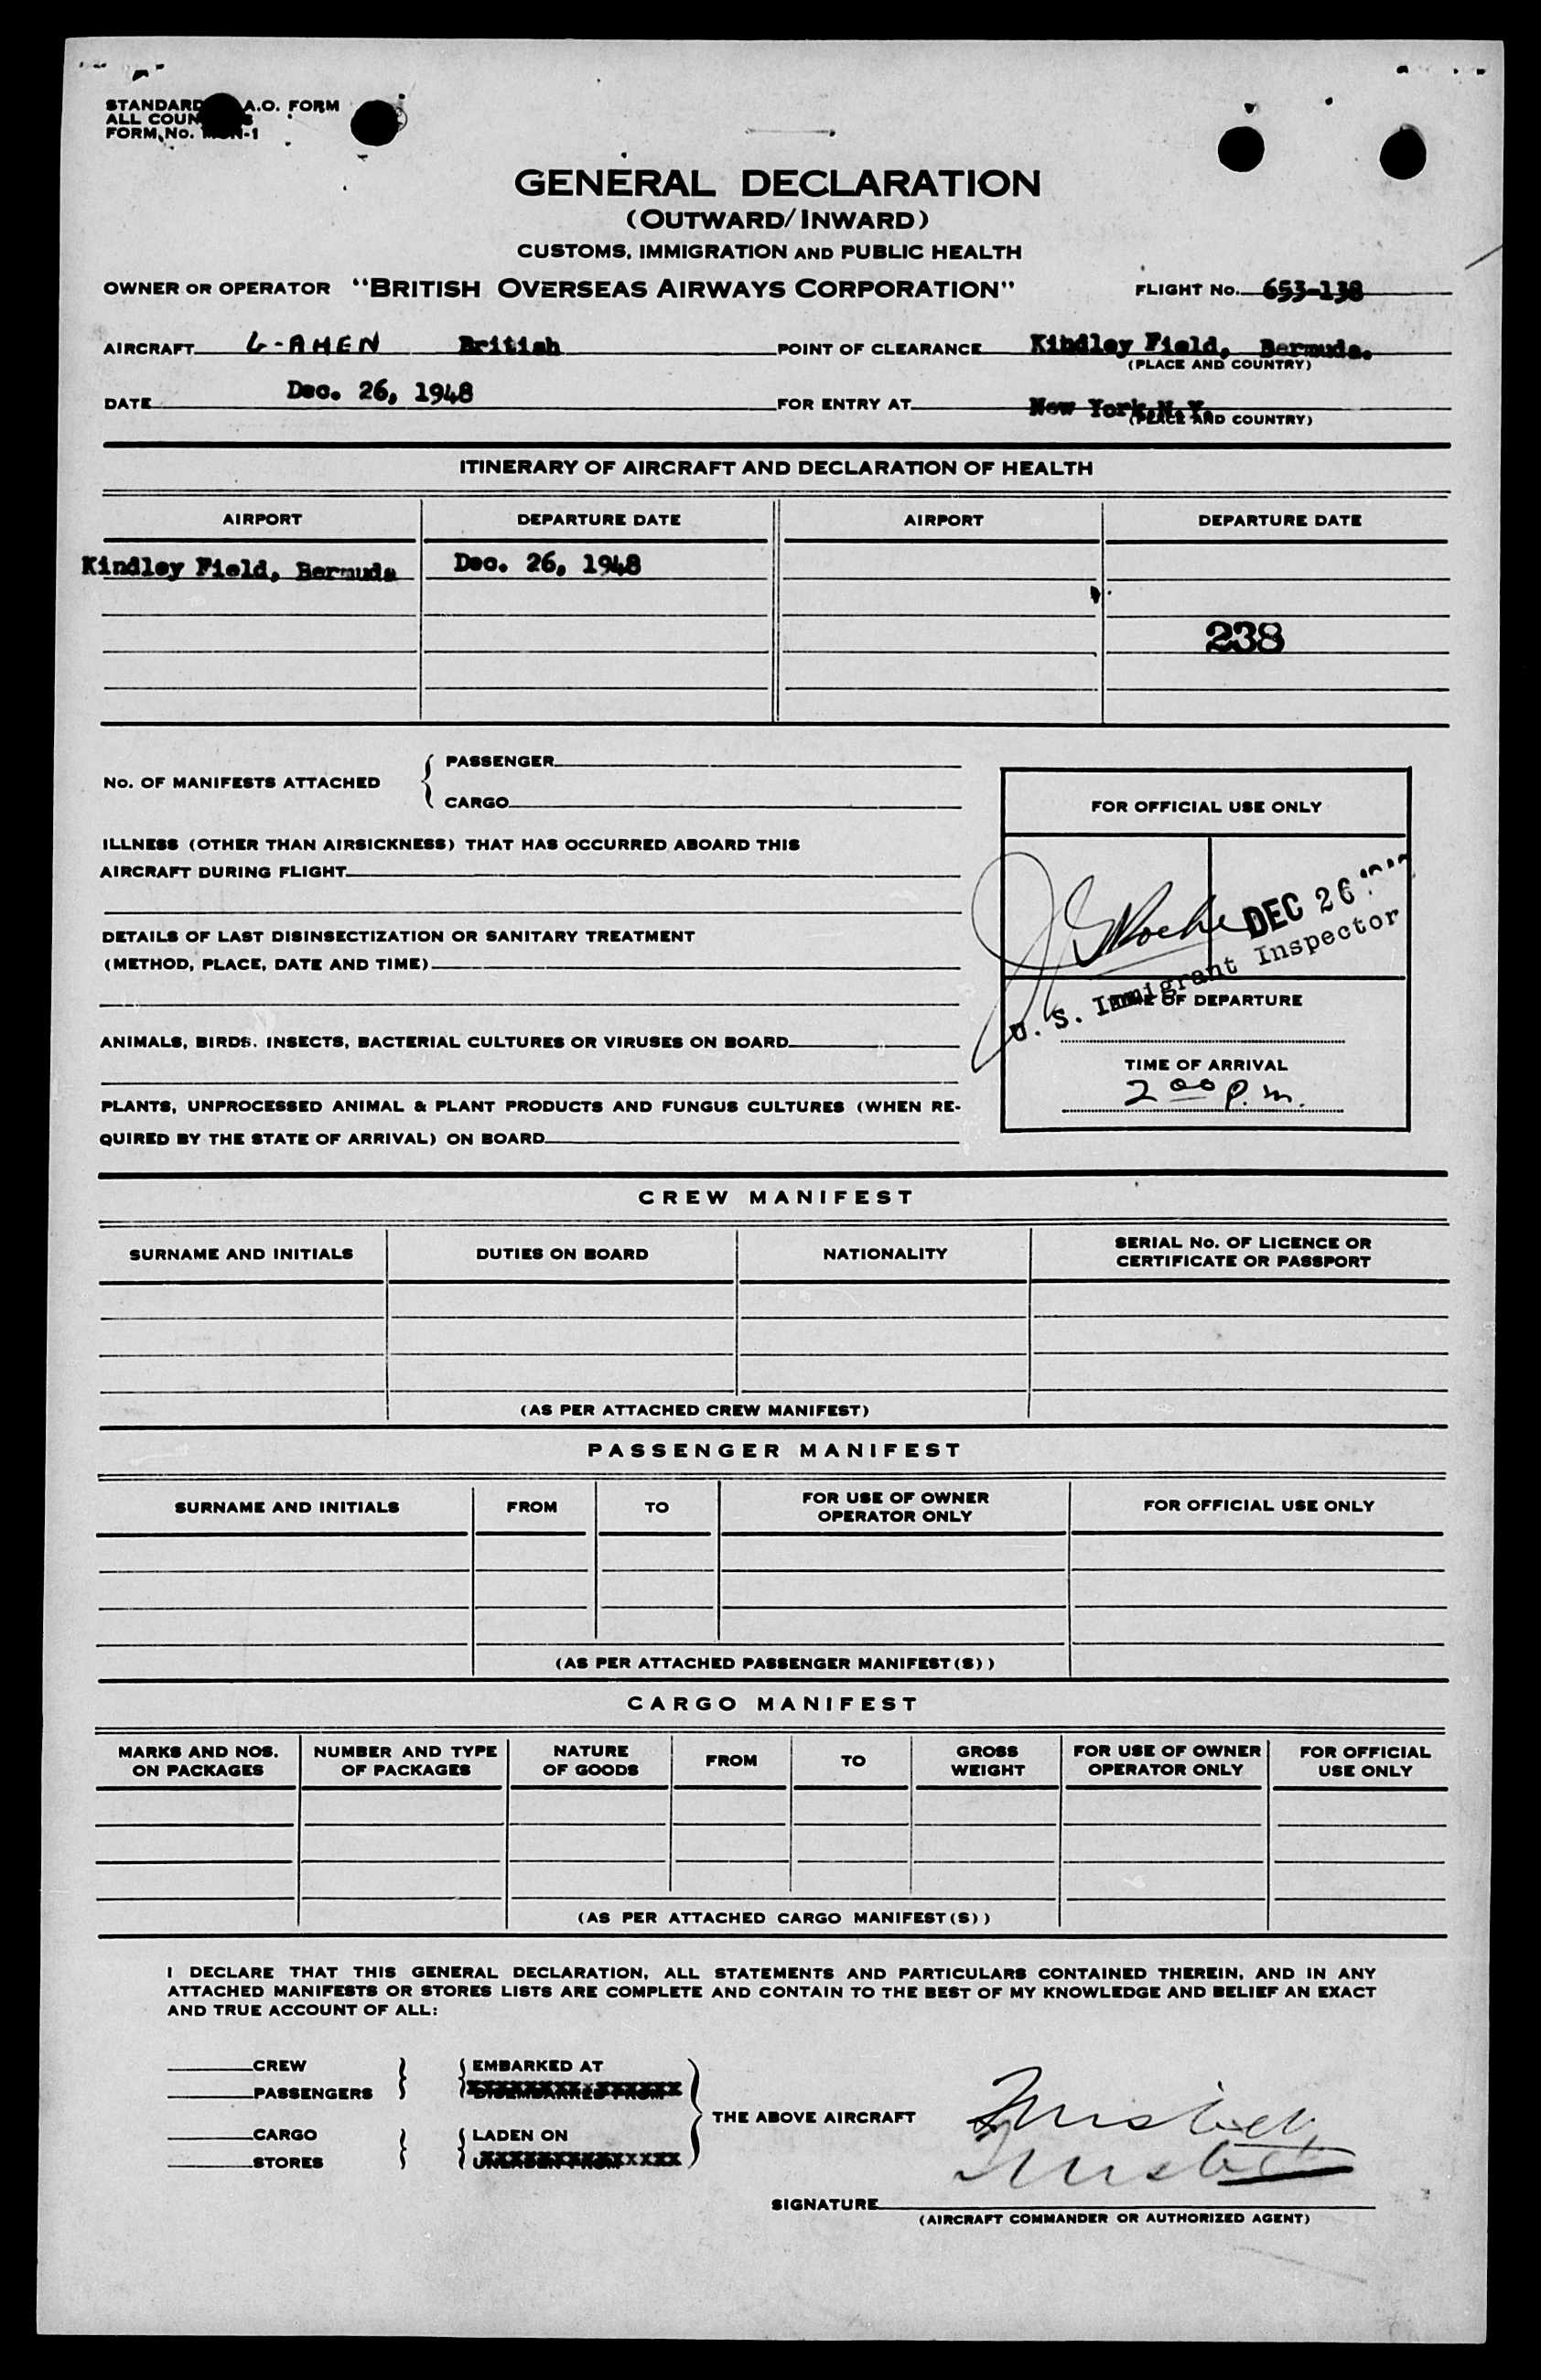 STANDARD A.O. FORM
ALL COUN S
FORM No. -1
GENERAL DECLARATION
(OUTWARD/INWARD)
CUSTOMS, IMMIGRATION AND PUBLIC HEALTH
OWNER OR OPERATOR "BRITISH OVERSEAS AIRWAYS CORPORATION" FLIGHT No. 653-138
AIRCRAFT G-AHEN British POINT OF CLEARANCE Kindley Field, Bermuda.
(PLACE AND COUNTRY)
DATE Dec. 26, 1948 FOR ENTRY AT New York, N.Y.
(PLACE AND COUNTRY)
ITINERARY OF AIRCRAFT AND DECLARATION OF HEALTH
AIRPORT DEPARTURE DATE AIRPORT DEPARTURE DATE
Kindley Field, Bermuda Dec. 26, 1948
238
No. OF MANIFESTS ATTACHED { PASSENGER
CARGO
FOR OFFICIAL USE ONLY
ILLNESS (OTHER THAN AIRSICKNESS) THAT HAS OCCURRED ABOARD THIS
AIRCRAFT DURING FLIGHT
Roche DEC 26
U. S. Immigrant Inspector
DETAILS OF LAST DISINSECTIZATION OR SANITARY TREATMENT
(METHOD, PLACE, DATE AND TIME)
OF DEPARTURE
ANIMALS, BIRDS, INSECTS, BACTERIAL CULTURES OR VIRUSES ON BOARD
TIME OF ARRIVAL
2 00 P.m.
PLANTS, UNPROCESSED ANIMAL & PLANT PRODUCTS AND FUNGUS CULTURES (WHEN RE-
QUIRED BY THE STATE OF ARRIVAL) ON BOARD
CREW MANIFEST
SURNAME AND INITIALS DUTIES ON BOARD NATIONALITY SERIAL No. OF LICENCE OR
CERTIFICATE OR PASSPORT
(AS PER ATTACHED CREW MANIFEST)
PASSENGER MANIFEST
SURNAME AND INITIALS FROM TO FOR USE OF OWNER
OPERATOR ONLY FOR OFFICIAL USE ONLY
(AS PER ATTACHED PASSENGER MANIFEST(S))
CARGO MANIFEST
MARKS AND NOS.
ON PACKAGES NUMBER AND TYPE
OF PACKAGES NATURE
OF GOODS FROM TO GROSS
WEIGHT FOR USE OF OWNER
OPERATOR ONLY FOR OFFICIAL
USE ONLY
(AS PER ATTACHED CARGO MANIFEST(S))
I DECLARE THAT THIS GENERAL DECLARATION, ALL STATEMENTS AND PARTICULARS CONTAINED THEREIN, AND IN ANY
ATTACHED MANIFESTS OR STORES LISTS ARE COMPLETE AND CONTAIN TO THE BEST OF MY KNOWLEDGE AND BELIEF AN EXACT
AND TRUE ACCOUNT OF ALL:
CREW EMBARKED AT
PASSENGERS
THE ABOVE AIRCRAFT
CARGO LADEN ON
STORES
SIGNATURE
(AIRCRAFT COMMANDER OR AUTHORIZED AGENT)